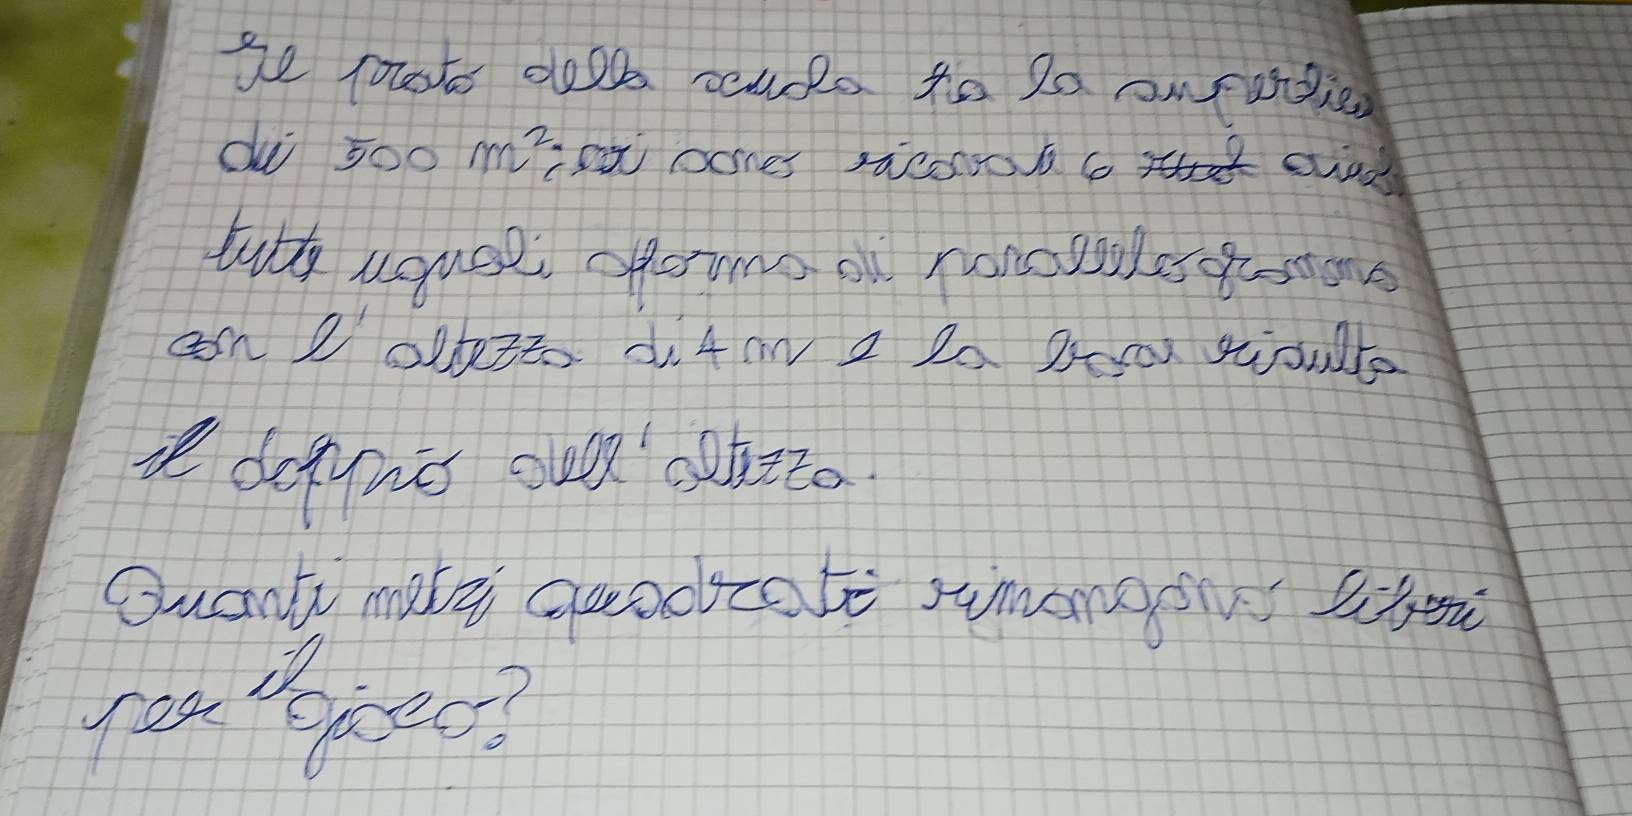 Il prato della scuola ha la superficie
di 500 m²; si sono ricavati 6 aiuole
tutte uguali a forma di parallelogramma
con l'altezza di 4 m e la base risulta
il doppio dell'altezza.
Quanti metri quadrati rimangono liberi
per il gioco?